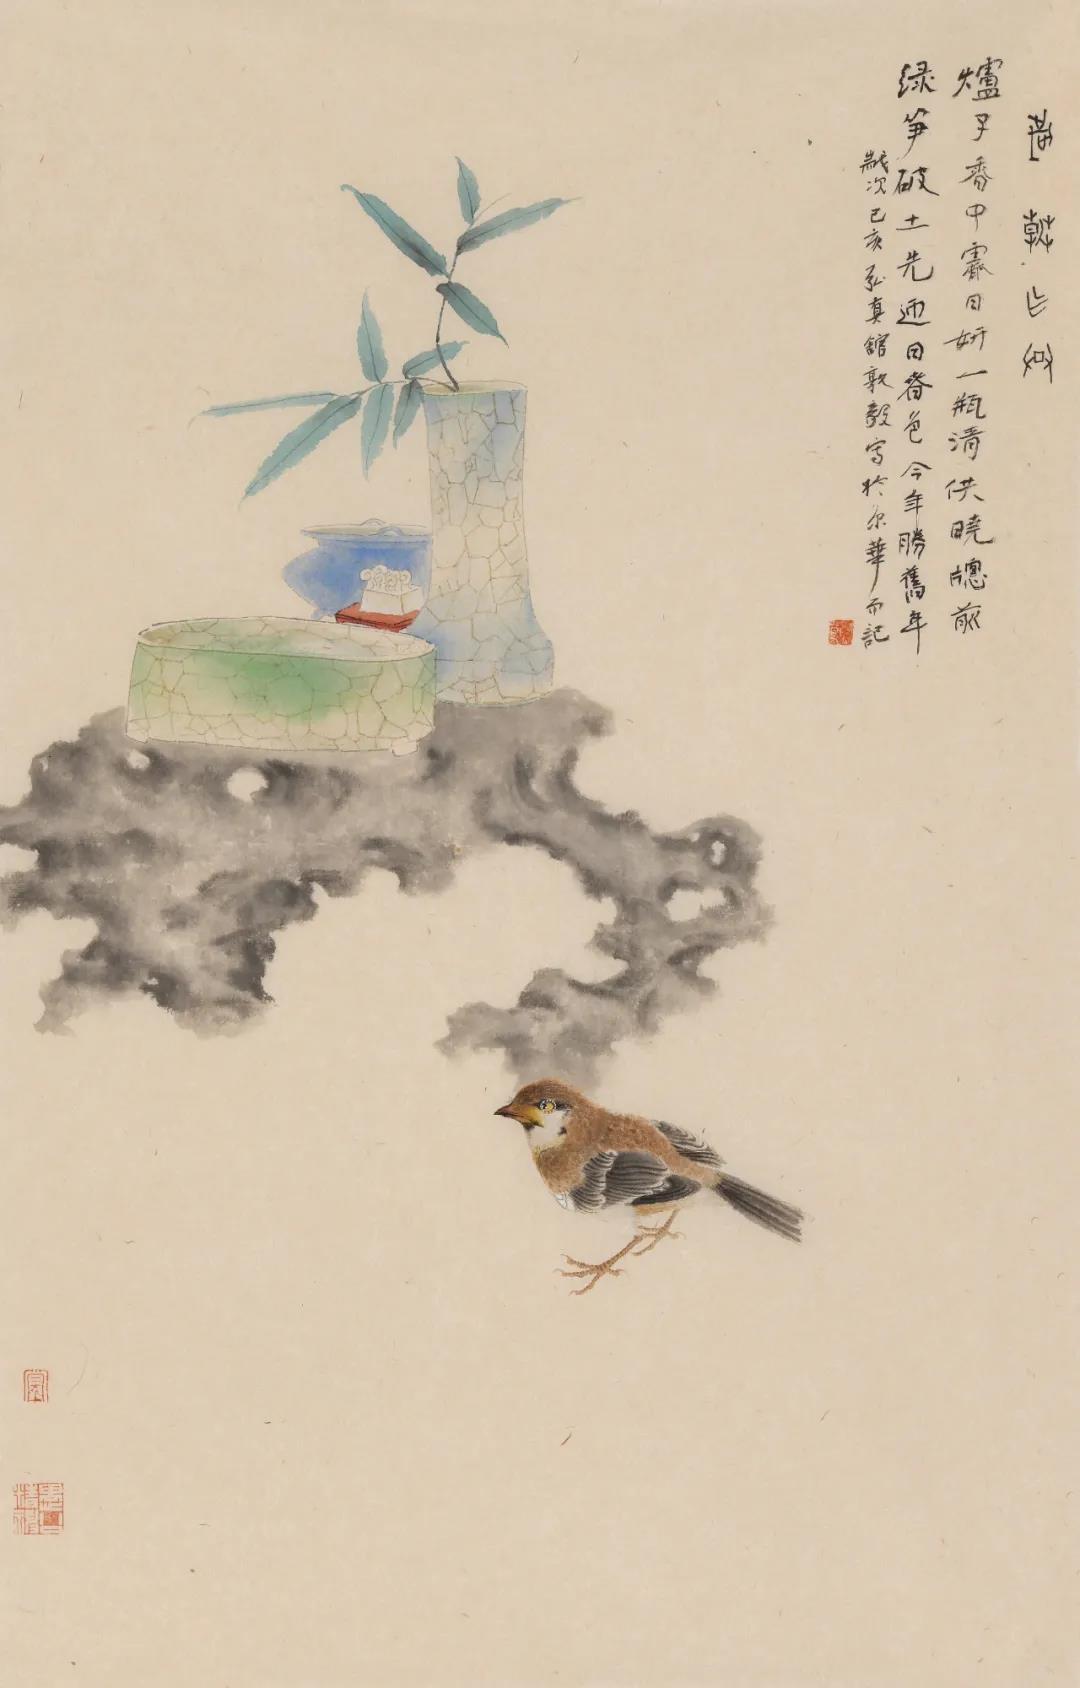 爐子香中霽日妍一瓶清供曉牕前
绿笋破土先迎日春色今年勝舊年
歲次己亥弘真館敦毅寫於京華而記